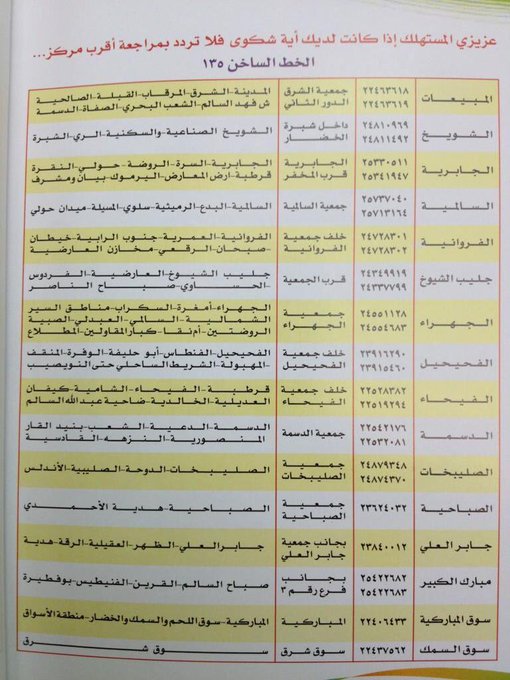 عزيزي المستهلك إذا كانت لديك أية شكوى فلا تردد بمراجعة أقرب مركز...
الخط الساخن ١٣٥
المبيعات ٢٢٤٦٣٦١٨ ٢٢٤٦٣٦١٩ جمعية الشرق الدور الثاني المدينة-الشرق-المرقاب-القبلة-الصالحية ش فهد السالم-الشعب البحري-الصفاة-الدسمة
الشويخ ٢٤٨١٠٩٦٩ ٢٤٨١١٤٩٢ داخل شبرة الخضار الشويخ الصناعية-والسكنية-الري-الشبرة
الجابرية ٢٥٣٣٠٥١١ ٢٥٣٤١٩٤٧ الجابرية قرب المخفر الجابرية-السرة-الروضة-حولي-النقرة قرطبة-ارض المعارض-اليرموك-بيان ومشرف
السالمية ٢٥٧٣٧٠٤٠ ٢٥٧١٣١٦٤ جمعية السالمية السالمية-البدع-الرميثية-سلوي-المسيلة-ميدان حولي
الفروانية ٢٤٧٢٨٣٠١ ٢٤٧٢٨٣٠٢ خلف جمعية الفروانية الفروانية-العمرية-جنوب الرابية-خيطان -صبحان-الرقعي-مخازن العارضية
جليب الشيوخ ٢٤٣٤٩٩١٩ ٢٤٣٣٧٧٩٩ قرب الجمعية جليب الشيوخ-العارضية-الفردوس الحساوي-صباح الناصر
الجهراء ٢٤٥٥١١٢٨ ٢٤٥٥٤٦٨٣ جمعية الجهراء الجهراء-أمغرة-السكراب-مناطق السير الشمالية-السالمي-العبدلي-الصبية الروضتين-أم نقا-كبار المقاولين-المطلاع
الفحيحيل ٢٣٩١٦٢٩٠ ٢٣٩١٥٤٦٠ خلف جمعية الفحيحيل الفحيحيل-الفنطاس-أبو حليفة-الوفرة-المنقف -المهبولة-الشريط الساحلي حتى النويصيب
الفيحاء ٢٢٥٢٨٣٨٢ ٢٢٥١٩٢٩٤ خلف جمعية الفيحاء قرطبة-الفيحاء-الشامية-كيفان العديلية-الخالدية-ضاحية عبدالله السالم
الدسمة ٢٢٥٤٢١٧٦ ٢٢٥٣٢٠٨١ جمعية الدسمة الدسمة-الدعية-الشعب-بنيد القار المنصورية-النزهه-القادسية
الصليبخات ٢٤٨٧٩٣٤٨ ٢٤٨٧٤٣٧٠ جمعية الصليبخات الصليبخات-الدوحة-الصليبية-الأندلس
الصباحية ٢٣٦٢٤٠٣٢ جمعية الصباحية الصباحية-هدية-الأحمدي
جابر العلي ٢٣٨٤٠٠١٢ بجانب جمعية جابر العلي جابر العلي-الظهر-العقيلية-الرقة-هدية
مبارك الكبير ٢٥٤٢٢٦٨٢ ٢٥٤٢٢٦٨٣ بجانب فرع رقم ٣ صباح السالم-القرين-الفنيطيس-بوفطيرة
سوق المباركية ٢٢٤٠٦٤٣٣ المباركية المباركية-سوق اللحم والسمك والخضار-منطقة الأسواق
سوق السمك ٢٢٤٣٧٥٦٢ سوق شرق سوق شرق